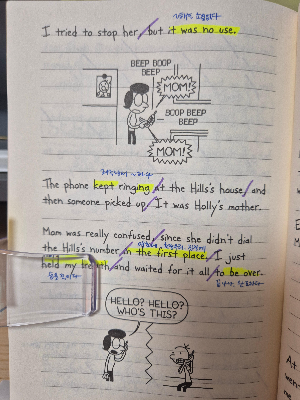 I tried to stop her, but it was no use.
BEEP BOOP
BEEP
MOM!
BOOP BEEP
BEEP
MOM!
The phone kept ringing at the Hills's house, and
then someone picked up. It was Holly's mother.
Mom was really confused, since she didn't dial
the Hills's number in the first place. I just
held my breath and waited for it all to be over.
HELLO? HELLO?
WHO'S THIS?